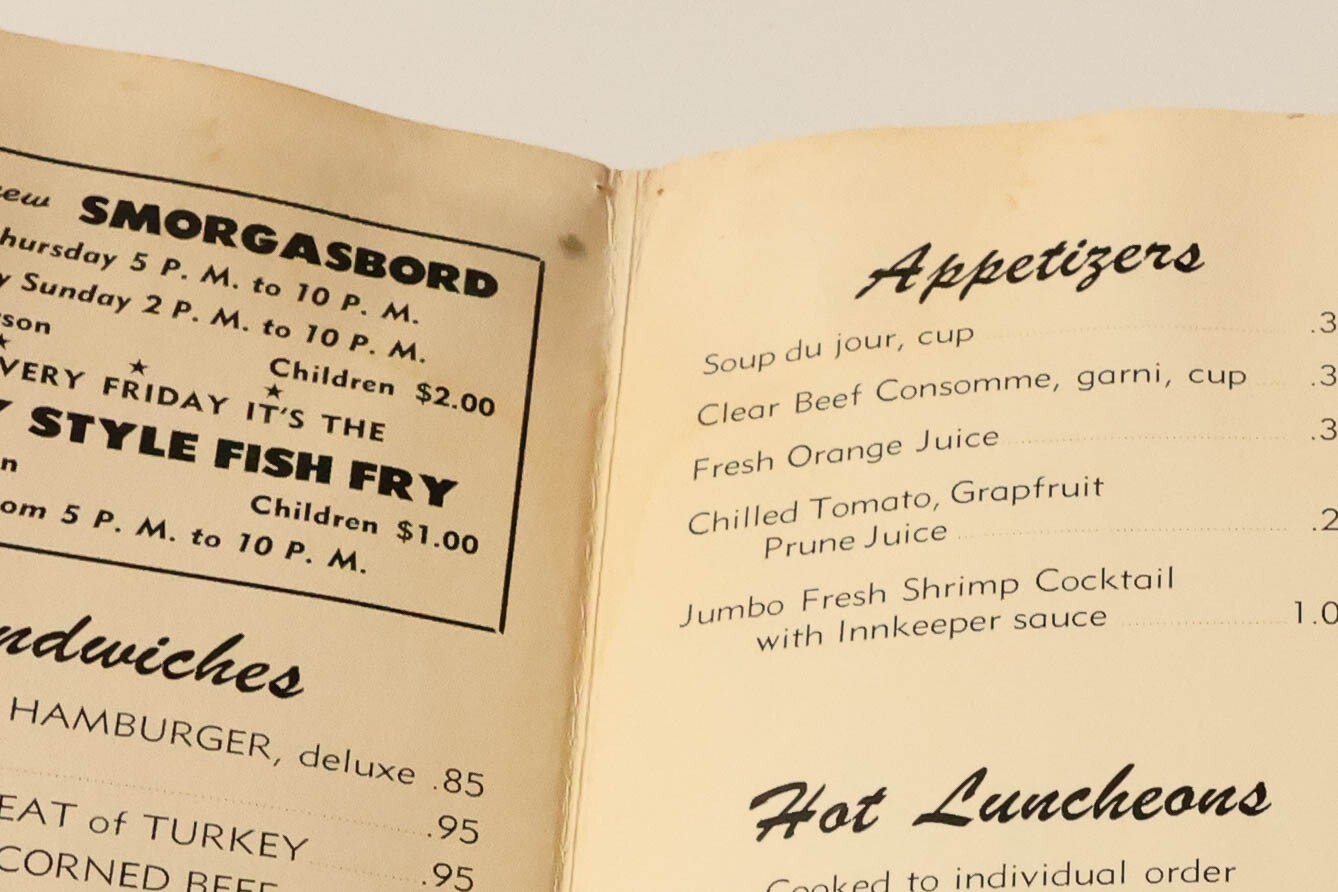 SMORGASBORD
5 P. M. to 10 P. M.
Sunday 2 P. M. to 10 P. M.
Children $2.00
FRIDAY IT'S THE
STYLE FISH FRY
Children $1.00
5 P. M. to 10 P. M.
HAMBURGER, deluxe .85
.95
of TURKEY
CORNED .95
Appetizers
Soup du jour, cup .3
Clear Beef Consomme, garni, cup .3
Fresh Orange Juice .3
Chilled Tomato, Grapfruit
Prune Juice .2
Jumbo Fresh Shrimp Cocktail
with Innkeeper sauce 1.0
Hot Luncheons
Cooked to individual order